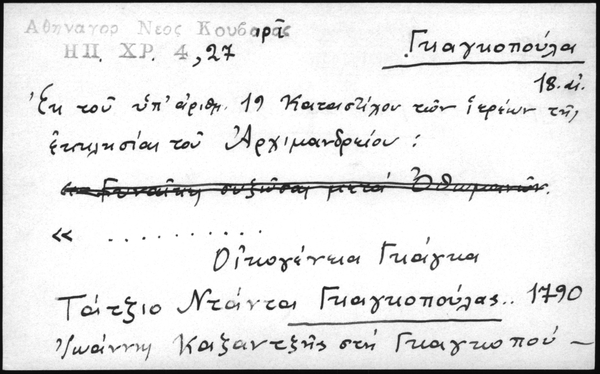 Αθηναγορ Νεος Κουβαρᾶς
ΗΠ. ΧΡ. 4, 27
Γκαγκοπούλα
18. αἰ.
Ἐκ τοῦ ὑπ' ἀριθμ. 19 Καταστίχου τῶν ἱερέων τῆς
ἐκκλησίας τοῦ Ἀρχιμανδρείου :
«Γυναῖκες συζῶσαι μετά Ὀθωμανῶν.
« . . . . . . . . . .
Οἰκογένεια Γκάγκα
Τάτζιο Ντάντα Γκαγκοπούλας.. 1790
Ἰωάννης Καζαντζῆς στή Γκαγκοπού –